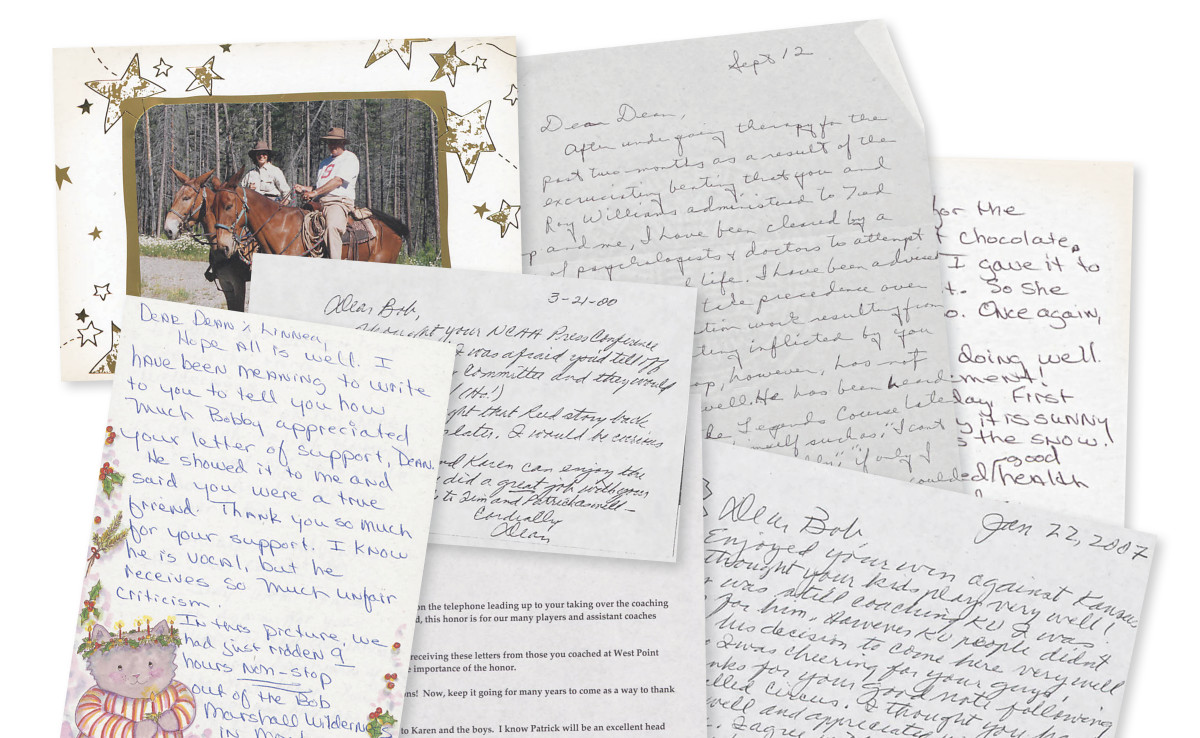 Sept 12
Dear Dean,
After undergoing therapy for the
past two months as a result of the
excruciating beating that you and
Roy Williams administered to Ted
and me, I have been cleared by a
of psychologists & doctors to attempt
life. I have been
precedence over
work resulting from
inflicted by you
however, has not
well. He has been
Legends Course
himself such as; "I can't
if only I
for the
chocolate.
I gave it to
So she
Once again,
doing well.
First
it is sunny
the snow.
good
health
3-21-00
Dear Bob,
your NCAA Press Conference
I was afraid you'd tell off
Committee and they would
(Ha!)
that Reid story back
later. I would be curious
and Karen can enjoy the
did a great job with your
to Tim and Patrick as well—
Cordially
Dean
Dear Dean & Linnea,
Hope all is well. I
have been meaning to write
to you to tell you how
much Bobby appreciated
your letter of support, Dean.
He showed it to me and
said you were a true
friend. Thank you so much
for your support. I know
he is vocal, but he
receives so much unfair
criticism.
In this picture, we
had just ridden 9
hours non-stop
out of the Bob
Marshall Wilderness
on the telephone leading up to your taking over the coaching
this honor is for our many players and assistant coaches
receiving these letters from those you coached at West Point
importance of the honor.
Now, keep it going for many years to come as a way to thank
to Karen and the boys. I know Patrick will be an excellent head
Jan 22, 2007
Dear Bob
Enjoyed your win against Kansas
thought your kids play very well!
was still coaching KU I was
for him. However KU people didn't
his decision to come here very well
I was cheering for your guys!
for your good note following
called circus. I thought you
well and
I agree